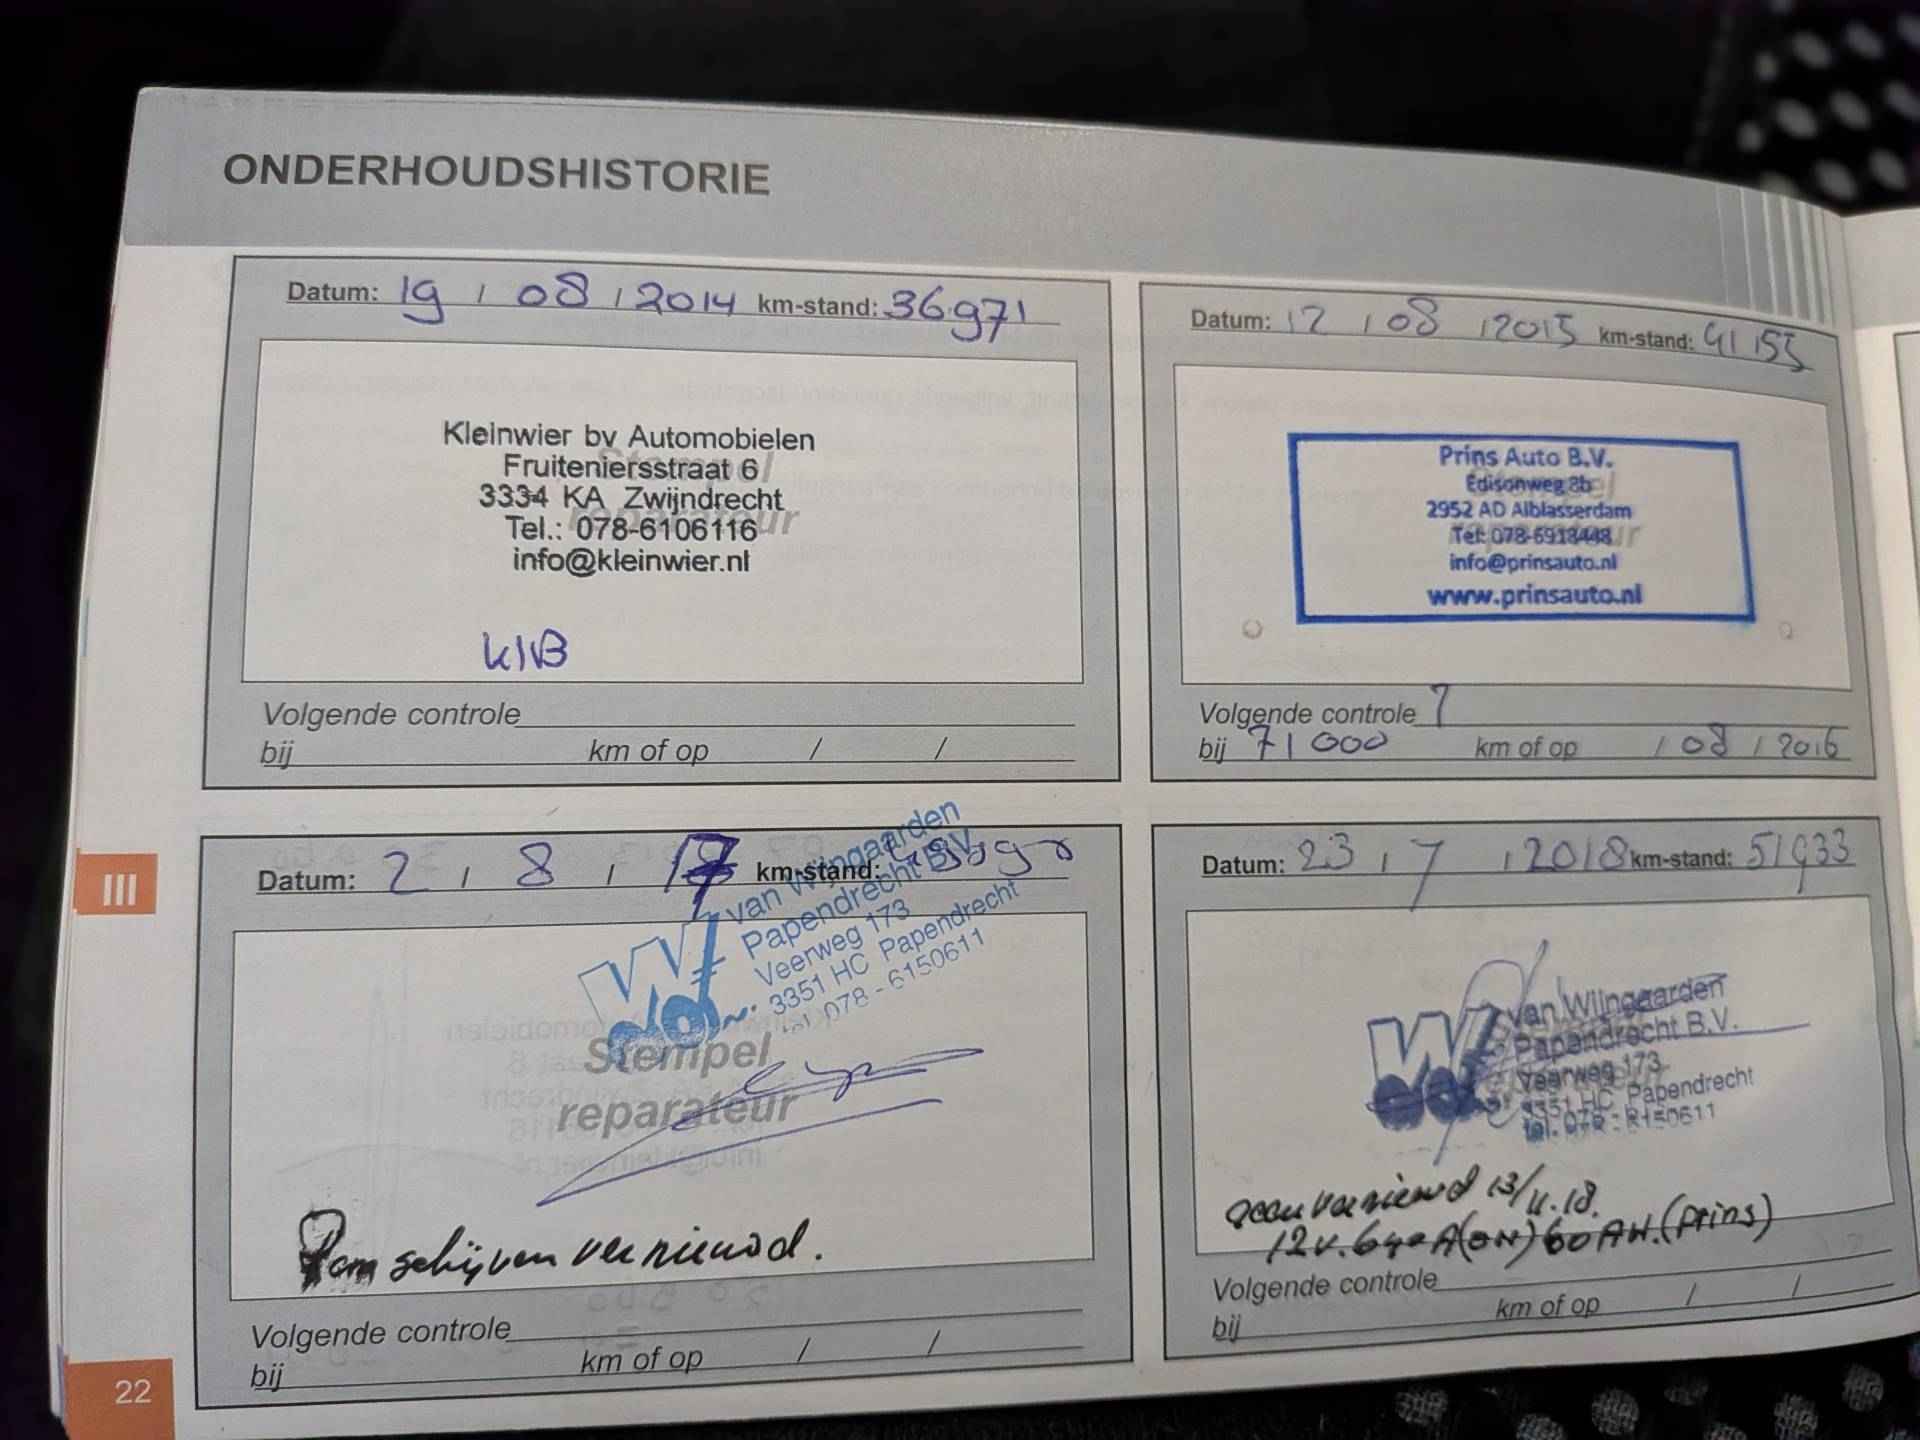 ONDERHOUDSHISTORIE
Datum: 19 / 08 / 2014 km-stand: 36.971
Kleinwier bv Automobielen
Fruiteniersstraat 6
3334 KA Zwijndrecht
Tel.: 078-6106116
info@kleinwier.nl
Stempel
reparateur
Volgende controle
bij km of op / /
Datum: 12 / 08 / 2015 km-stand: 41155
Prins Auto B.V.
Edisonweg 8b
2952 AD Alblasserdam
Tel: 078-6918448
info@prinsauto.nl
www.prinsauto.nl
Volgende controle
bij 71000 km of op / 08 / 2016
Datum: 2 / 8 / 17 km-stand:
van Wijngaarden
Papendrecht B.V.
Veerweg 173
3351 HC Papendrecht
tel. 078 - 6150611
Stempel
reparateur
schijven vernieuwd.
Volgende controle
bij km of op / /
Datum: 23 / 7 / 2018 km-stand: 51933
van Wijngaarden
Papendrecht B.V.
Veerweg 173
3351 HC Papendrecht
tel. 078 - 6150611
accu vernieuwd 13/11.18.
12V. 640A(EN) 60AH. (Prins)
Volgende controle
bij km of op / /
III
22